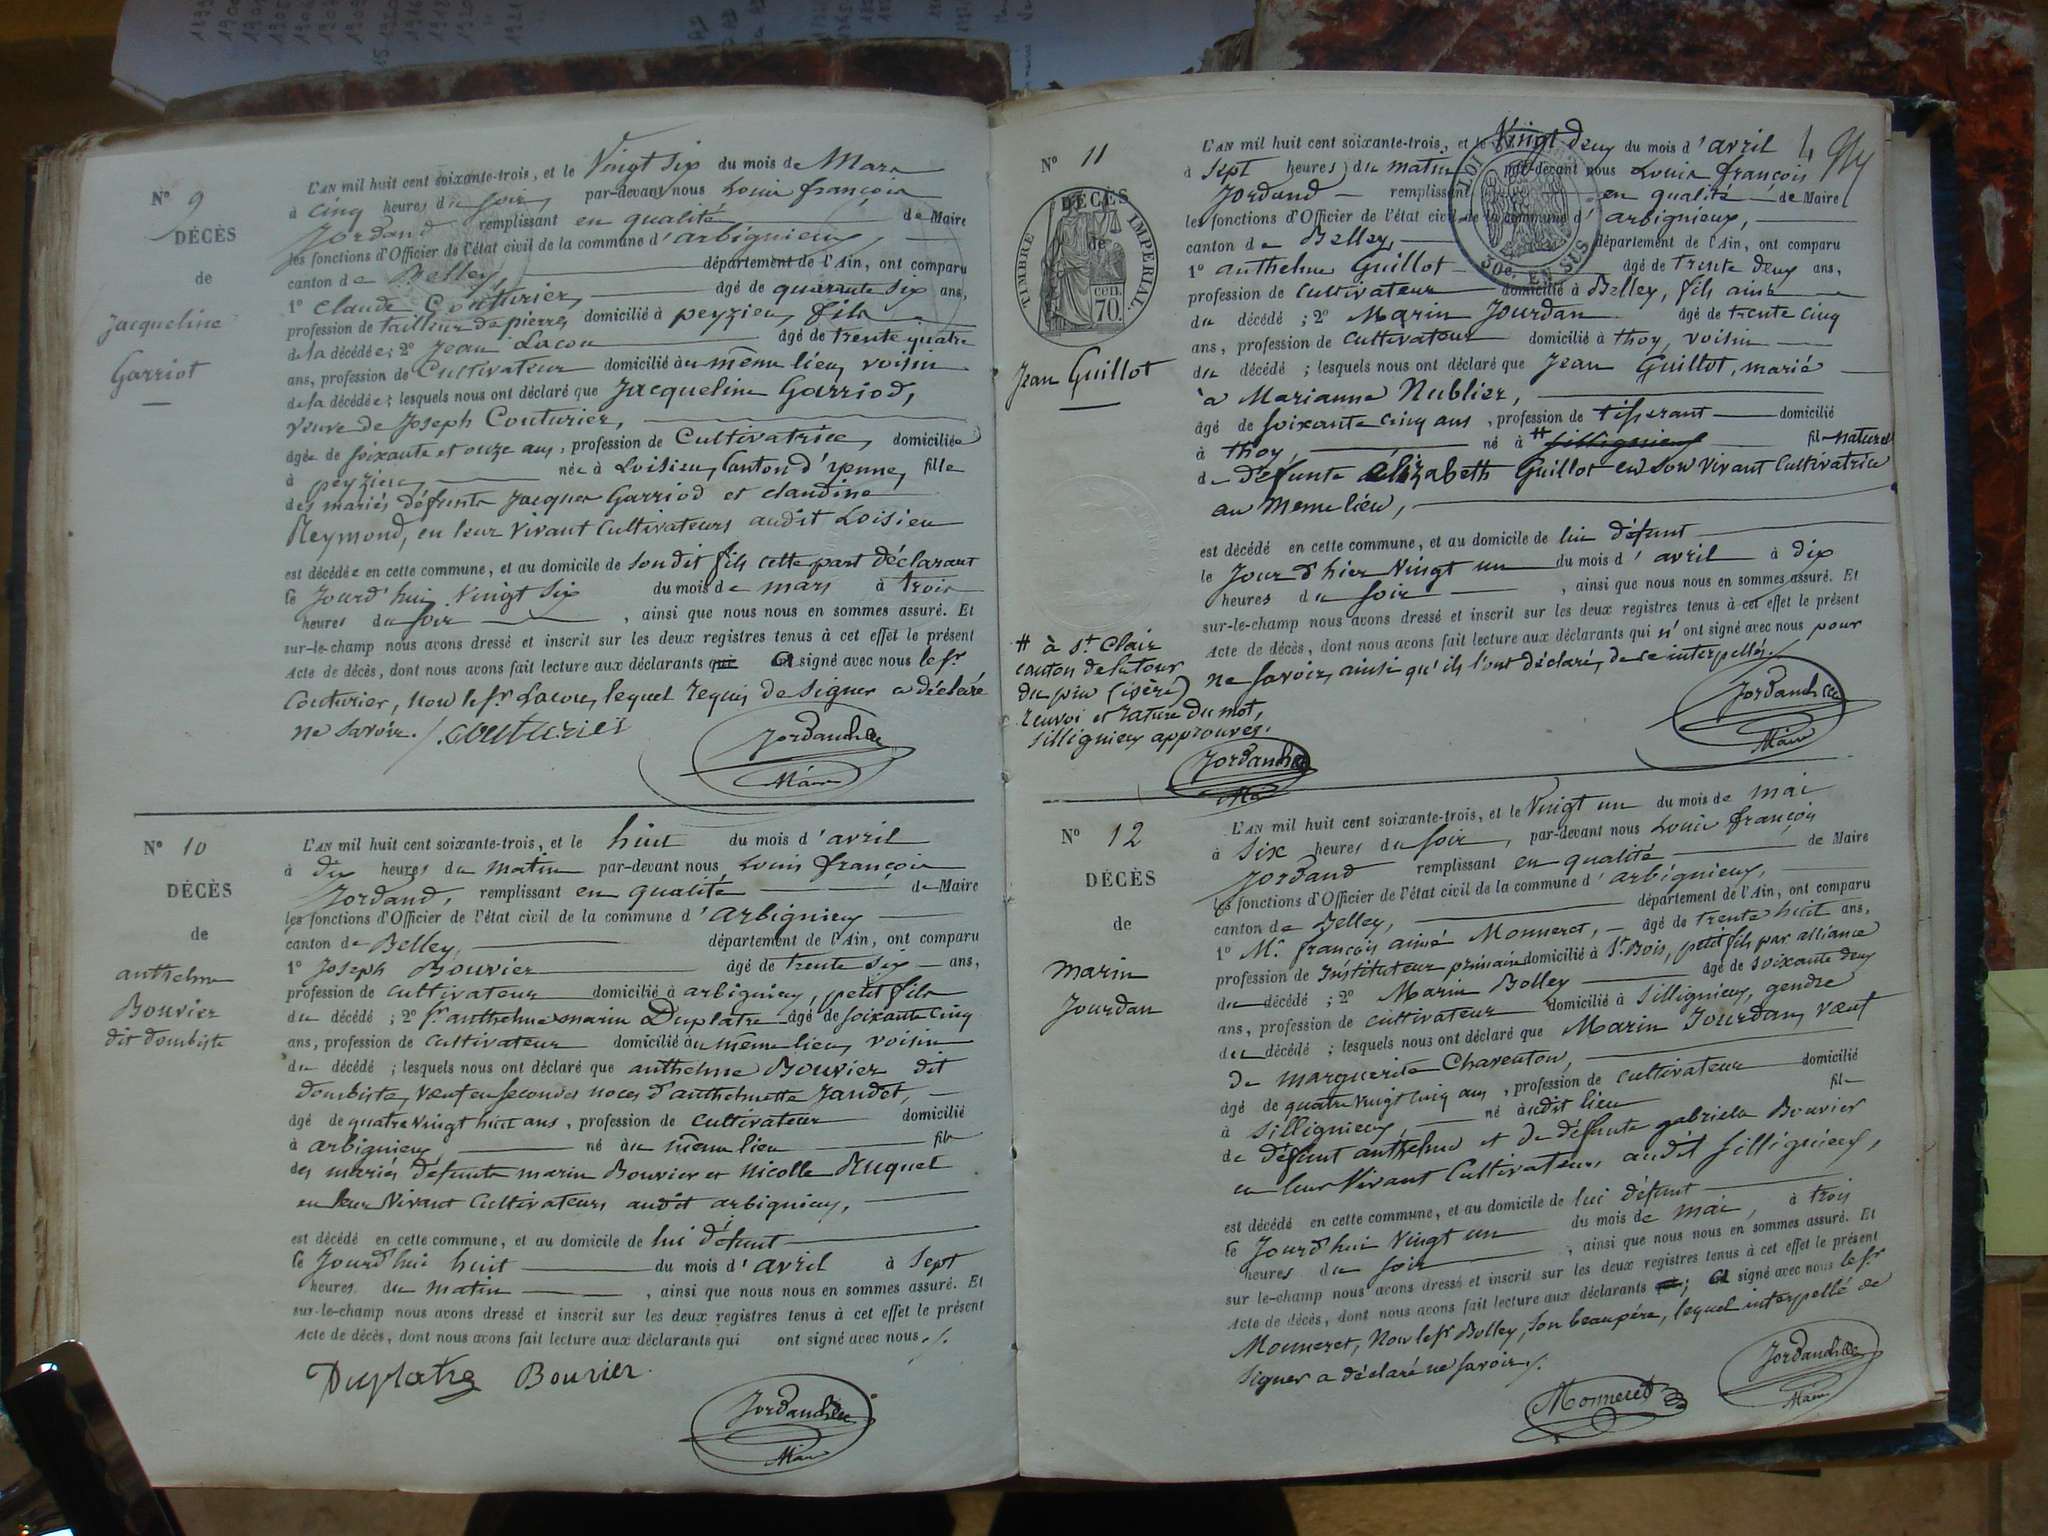 N° 9
DÉCÈS
de
Jacqueline
Garriot
L'AN mil huit cent soixante-trois, et le Vingt Six du mois de Mars
à Cinq heures du soir, par-devant nous Louis françois
Jordand remplissant en qualité de Maire
les fonctions d'Officier de l'état civil de la commune d'arbignieu,
canton de Belley, département de l'Ain, ont comparu
1° Claude Couturier, âgé de quarante six ans,
profession de tailleur de pierre, domicilié à peyzieu, fils
de la décédée; 2° Jean Lacou âgé de trente quatre
ans, profession de Cultivateur domicilié au même lieu, voisin
de la décédée; lesquels nous ont déclaré que Jacqueline Garriod,
veuve de Joseph Couturier,
âgée de soixante et onze ans, profession de Cultivatrice, domiciliée
à peyzieu, née à Loisieu, Canton d'yenne, fille
des mariés défunts Jacques Garriod et claudine
Reymond, en leur vivant Cultivateurs audit Loisieu
est décédée en cette commune, et au domicile de son dit fils cette part déclarant
le Jourd'hui Vingt Six du mois de mars à trois
heures du soir, ainsi que nous nous en sommes assuré. Et
sur-le-champ nous avons dressé et inscrit sur les deux registres tenus à cet effet le présent
Acte de décès, dont nous avons fait lecture aux déclarants qui a signé avec nous le sr
Couturier, Non le sr Lacou, lequel requis de signer a déclaré
ne savoir ./. couturier
Jordand
Maire
N° 10
DÉCÈS
de
anthelme
Bouvier
dit dombiste
L'AN mil huit cent soixante-trois, et le huit du mois d'avril
à dix heures du matin par-devant nous Louis françois
Jordand, remplissant en qualité de Maire
les fonctions d'Officier de l'état civil de la commune d'Arbignieu
canton de Belley, département de l'Ain, ont comparu
1° Joseph Bouvier âgé de trente six ans,
profession de cultivateur domicilié à arbignieu, petit fils
du décédé; 2° sr anthelme marin Duplatre âgé de soixante cinq
ans, profession de cultivateur domicilié au même lieu, voisin
du décédé; lesquels nous ont déclaré que anthelme Bouvier dit
dombiste, veuf en secondes noces d'anthelmette Jandet,
âgé de quatre vingt huit ans, profession de cultivateur domicilié
à arbignieu, né au même lieu fils
des mariés défunts marin Bouvier et Nicolle Ruquet
en leur Vivant Cultivateurs audit arbignieu,
est décédé en cette commune, et au domicile de lui défunt
le Jourd'hui huit du mois d'avril à Sept
heures du matin, ainsi que nous nous en sommes assuré. Et
sur-le-champ nous avons dressé et inscrit sur les deux registres tenus à cet effet le présent
Acte de décès, dont nous avons fait lecture aux déclarants qui ont signé avec nous ./.
Duplatre Bouvier
Jordand
Maire
N° 11
DÉCÈS
de
TIMBRE IMPÉRIAL
70 cen
Jean Guillot
LOI
30c. EN SUS
L'AN mil huit cent soixante-trois, et le Vingt deux du mois d'avril
à Sept heures du matin par-devant nous Louis françois
Jordand remplissant en qualité de Maire
les fonctions d'Officier de l'état civil de la commune d'arbignieux,
canton de Belley, département de l'Ain, ont comparu
1° anthelme Guillot âgé de trente deux ans,
profession de cultivateur domicilié à Belley, fils ainé
du décédé; 2° Marin Jourdan âgé de trente cinq
ans, profession de cultivateur domicilié à thoy, voisin
du décédé; lesquels nous ont déclaré que Jean Guillot, marié
à Marianne Nublier,
âgé de soixante cinq ans, profession de tisserant domicilié
à thoy, né à # sillignieux fils naturel
de défunte élizabeth Guillot en son vivant Cultivatrice
au meme lieu,
est décédé en cette commune, et au domicile de lui défunt
le Jour d'hier Vingt un du mois d'avril à dix
heures du soir, ainsi que nous nous en sommes assuré. Et
sur-le-champ nous avons dressé et inscrit sur les deux registres tenus à cet effet le présent
Acte de décès, dont nous avons fait lecture aux déclarants qui n'ont signé avec nous pour
ne savoir, ainsi qu'ils l'ont déclaré, de ce interpellés ./.
Jordand
Maire
# à St Clair
canton de latour
du pin (isère)
renvoi et rature du mot,
sillignieux approuvés.
Jordand
Maire
N° 12
DÉCÈS
de
Marin
Jourdan
L'AN mil huit cent soixante-trois, et le Vingt un du mois de mai
à six heures du soir, par-devant nous Louis françois
Jordand remplissant en qualité de Maire
les fonctions d'Officier de l'état civil de la commune d'arbignieux,
canton de Belley, département de l'Ain, ont comparu
1° Mr françois aimé Monneret, âgé de trente huit ans,
profession de instituteur primaire domicilié à St Bois, petit fils par alliance
du décédé; 2° Marin Bolley âgé de soixante deux
ans, profession de cultivateur domicilié à Sillignieux, gendre
du décédé; lesquels nous ont déclaré que Marin Jourdan, veuf
de marguerite Charenton,
âgé de quatre vingt cinq ans, profession de cultivateur domicilié
à Sillignieux, né audit lieu fils
de défunt anthelme et de défunte gabriele Bouvier
en leur Vivant Cultivateurs audit Sillignieux,
est décédé en cette commune, et au domicile de lui défunt
le Jourd'hui Vingt un du mois de mai, à trois
heures du soir, ainsi que nous nous en sommes assuré. Et
sur le-champ nous avons dressé et inscrit sur les deux registres tenus à cet effet le présent
Acte de décès, dont nous avons fait lecture aux déclarants; a signé avec nous le sr
Monneret, Non le sr Bolley, son beaupère, lequel interpellé de
signer a déclaré ne savoir ./.
Monneret
Jordand
Maire